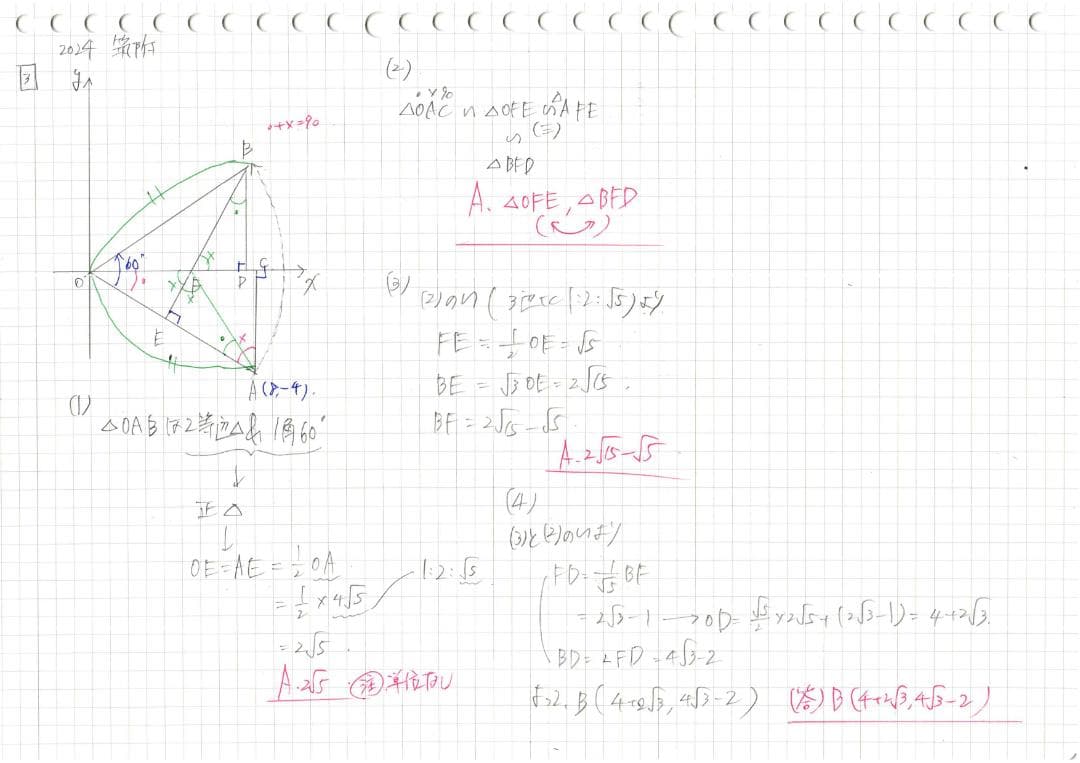 2024 筑附
3
y
・+x=90
B
60°
O
F
D
C
x
E
A(8,-4).
(1)
△OABは2等辺△&1角60°
↓
正△
↓
OE=AE=1/2OA
=1/2×4√5
1:2:√5
=2√5.
A.2√5 注 単位なし
(2)
△OAC∽△OFE∽△AFE
∽(≡)
△BFD
A. △OFE, △BFD
(3)
(2)の∽(3辺比1:2:√5)より
FE=1/2OE=√5
BE=√3OE=2√15.
BF=2√15-√5.
A.2√15-√5
(4)
(3)と(2)の∽より
FD=1/√5BF
=2√3-1→OD=√5/2×2√5+(2√3-1)=4+2√3.
BD=2FD=4√3-2
よって、B(4+2√3,4√3-2)
(答)B(4+2√3,4√3-2)